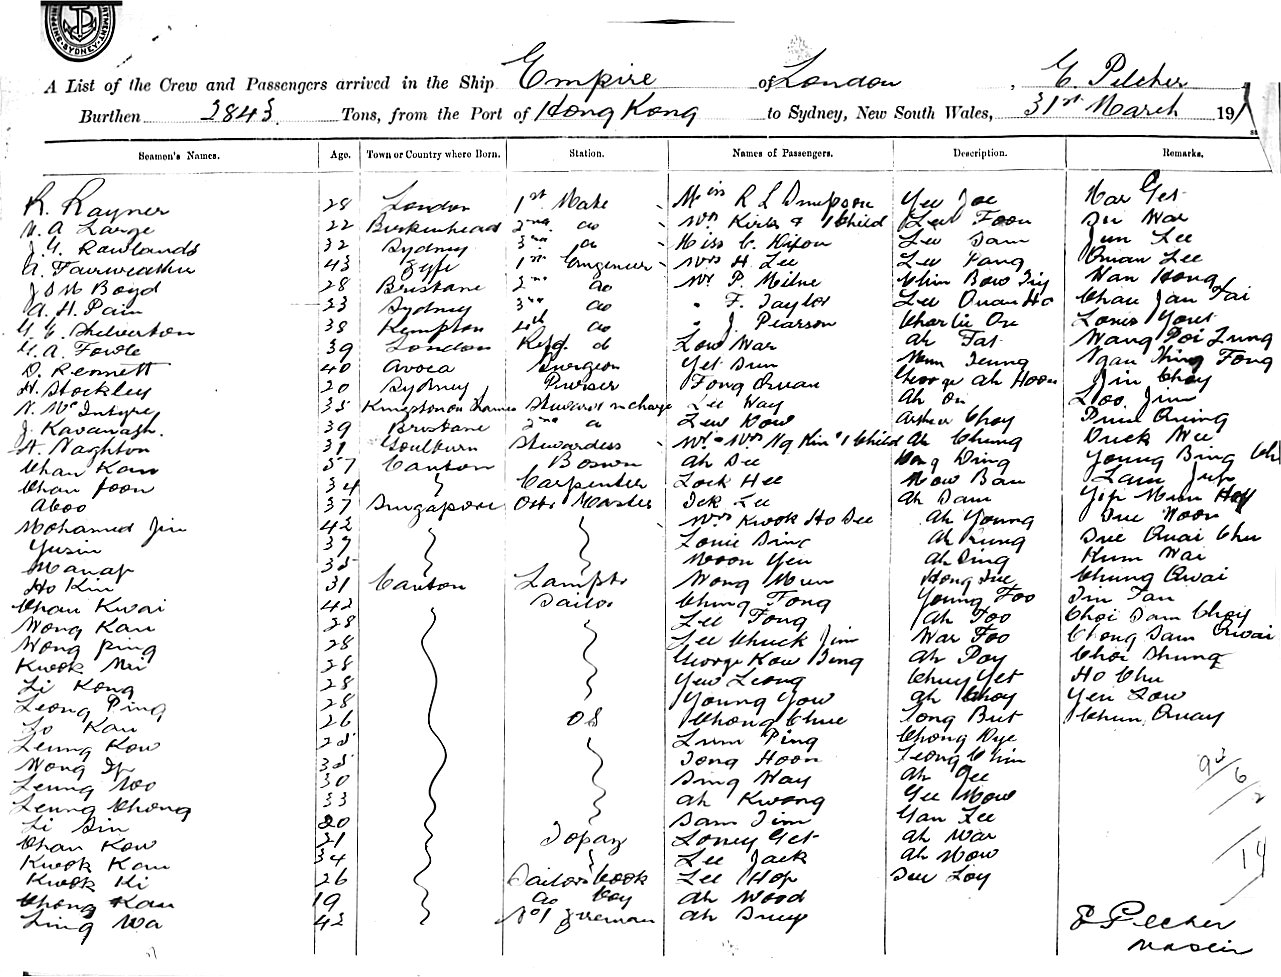 A List of the Crew and Passengers arrived in the Ship Empire of London, E. Pelcher
Burthen 2843 Tons, from the Port of Hong Kong to Sydney, New South Wales, 31st March 191
Seamen's Names. Age. Town or Country where Born. Station. Names of Passengers. Description. Remarks.
R. Rayner 28 London 1st Mate Miss R L Simpson Yee Joe Mar Get
A Large 22 Birkenhead 2nd do Mrs Kirk & 1 Child Lew Foon Sin War
J. Y. Rawlands 32 Sydney 3rd do Miss C. Nixon Lee Sam Jun Lee
A. Fairweather 43 Fyfe 1st Engineer Mrs H. Lee Lee Fang Quan Lee
J S M Boyd 28 Brisbane 2nd do Mr P. Milne Chin Bow Wan Hong
A. H. Pain 23 Sydney 3rd do " F. Taylor Lee Quan Ho Chau Jan Tai
Silverton 38 Kempton 4th do " J. Pearson Charlie On Louis Yout
A. Fowle 39 London Low War Ah Tat Wang Poi Lung
D. Rennett 40 Avoca Surgeon Get Sun Mun Leung Ngan Hing Fong
H. Stockley 20 Sydney Purser Fong Quan George Ah Hoon Jin Choy
N. McIntyre 35 Kingston on Thames Steward in charge Lee Way Ah On Loo Jim
J. Kavanagh. 39 Brisbane 2nd do Lew Dow Arthur Choy Quing
H. Naghton 31 Goulburn Stewardess Mr & Mrs Ng Kin & 1 Child Ah Chung Duck Wee
Chan Kan 57 Canton Boswn Ah See Wing Young Bing
Chan Joon 34 Carpenter Lock Hee Mow Ban Lam Jup
Aboo 37 Singapore Qtr Master Dek Lee Ah Sam Yip Mun Hoy
Mohamed Jin 42 Mrs Kwok Ho See Ah Young Sue Woon
Yusin 37 Louie Sing Ah Kung Sue Quai Chu
Manap 35 Moon Yen Ah Sing Kum Wai
Ho Kin 31 Canton Lamps Wong Mun Hong Sue Chung Quai
Chan Kwai 42 Sailor Ching Tong Young Foo Jin Tan
Wong Kan 28 Lee Fong Ah Foo Choi Sam Choy
Wong Ping 28 Lee Chuck Jim War Foo Chong Sam Quai
Kwok Mui 28 George Kow Sing Ah Poy Choi Shung
Li Kong 28 Yew Leong Chuy Yet Ho Chu
Leong Ping 28 Young Gow Ah Choy Yen Low
Lo Kan 26 OS Chong Chue Tong But Chun Quay
Leung Kow 25 Lum Ping Chong Dye
Wong Ip 35 Tong Hoon Leong Chin
Leung Woo 30 Sing Way Ah Gee
Leung Chong 33 Ah Kwong Gee Mow
Li Sin 20 Sam Jim Yan Lee
Chan Kow 21 Topaz Loney Get Ah War
Kwok Kan 34 Lee Jack Ah Mow
Kwok Ki 26 Sailors Cook Lee Hop Sue Loy
Chong Kan 19 do boy Ah Wood
Ling Wa 42 No 1 Fireman Ah
E Pelcher
Master